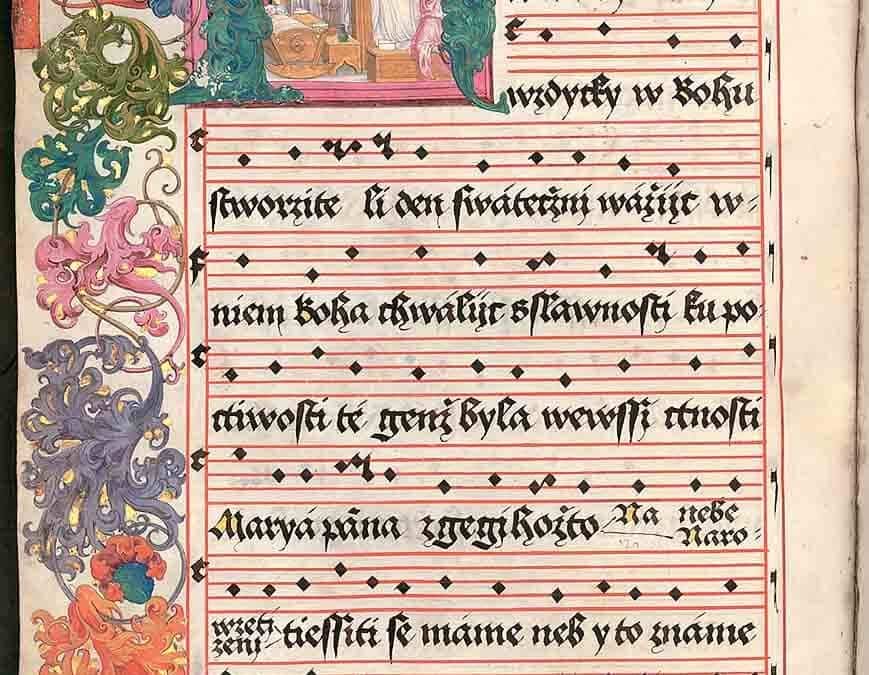 wzdycky w Bohu
stworzite li den swátečžnj wážijc w-
niem Boha chwálijc sslawnosti ku po-
ctiwosti té genž byla wewssij ctnosti
Marya pána zgegihožto Na nebe
Naro-
wzeti
zenij tiessiti se máme neb y to známe